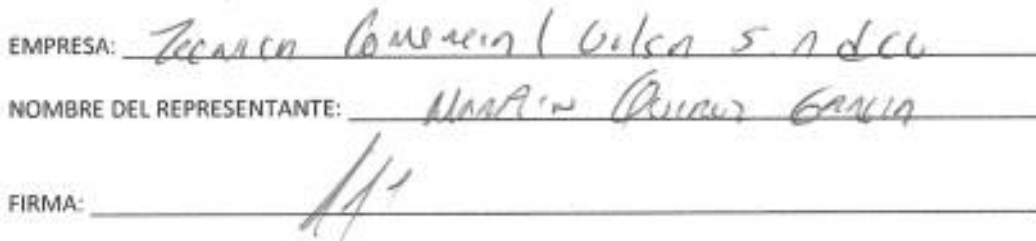 EMPRESA: Tecnica Comercial Vilsa S.A de CV
NOMBRE DEL REPRESENTANTE: Martin Quiroz Garcia
FIRMA: